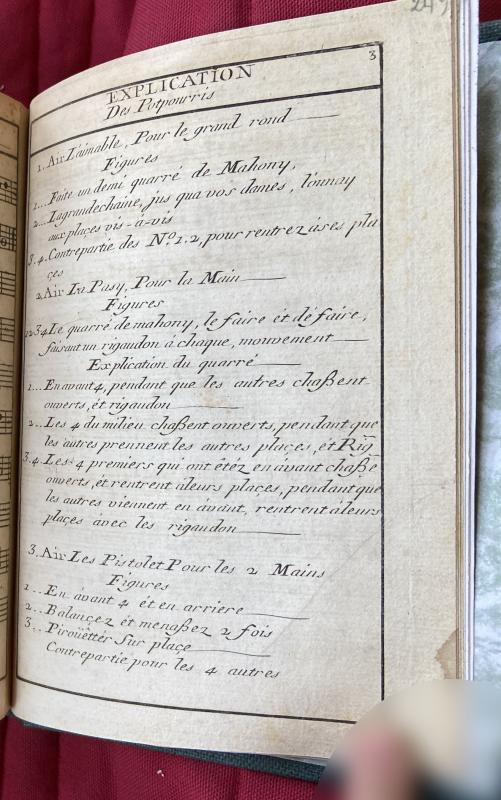 249
3
EXPLICATION
Des Potpourris
1. Air L'aimable, Pour le grand rond
Figures
1... Faite un demi quarré de Mahony,
2... Lagrandechaine, jus qua vos dames, l'onnay
aux places vis-à-vis
3.4. Contrepartie des Nº 1.2, pour rentrez àses pla
çes
2. Air La Pasy, Pour la Main
Figures
1234 Le quarré de mahony, le faire et dé faire,
faisant un rigaudon à chaque, mouvement
Explication du quarré
1... En avant 4, pendant que les autres chaßent
ouverts, et rigaudon
2... Les 4 du milieu chaßent ouverts, pendant que
les autres prennent les autres plaçes, et Rig
3.4. Les 4 premiers qui ont étéz en avant chaße
ouverts, et rentrent àleurs plaçes, pendant que
les autres viennent en avant, rentrent àleurs
plaçes avec les rigaudon
3. Air Les Pistolet Pour les 2 Mains
Figures
1... En avant 4 et en arriere
2... Balançez et menaßez 2 fois
3... Piroüettér sur plaçe
Contrepartie pour les 4 autres